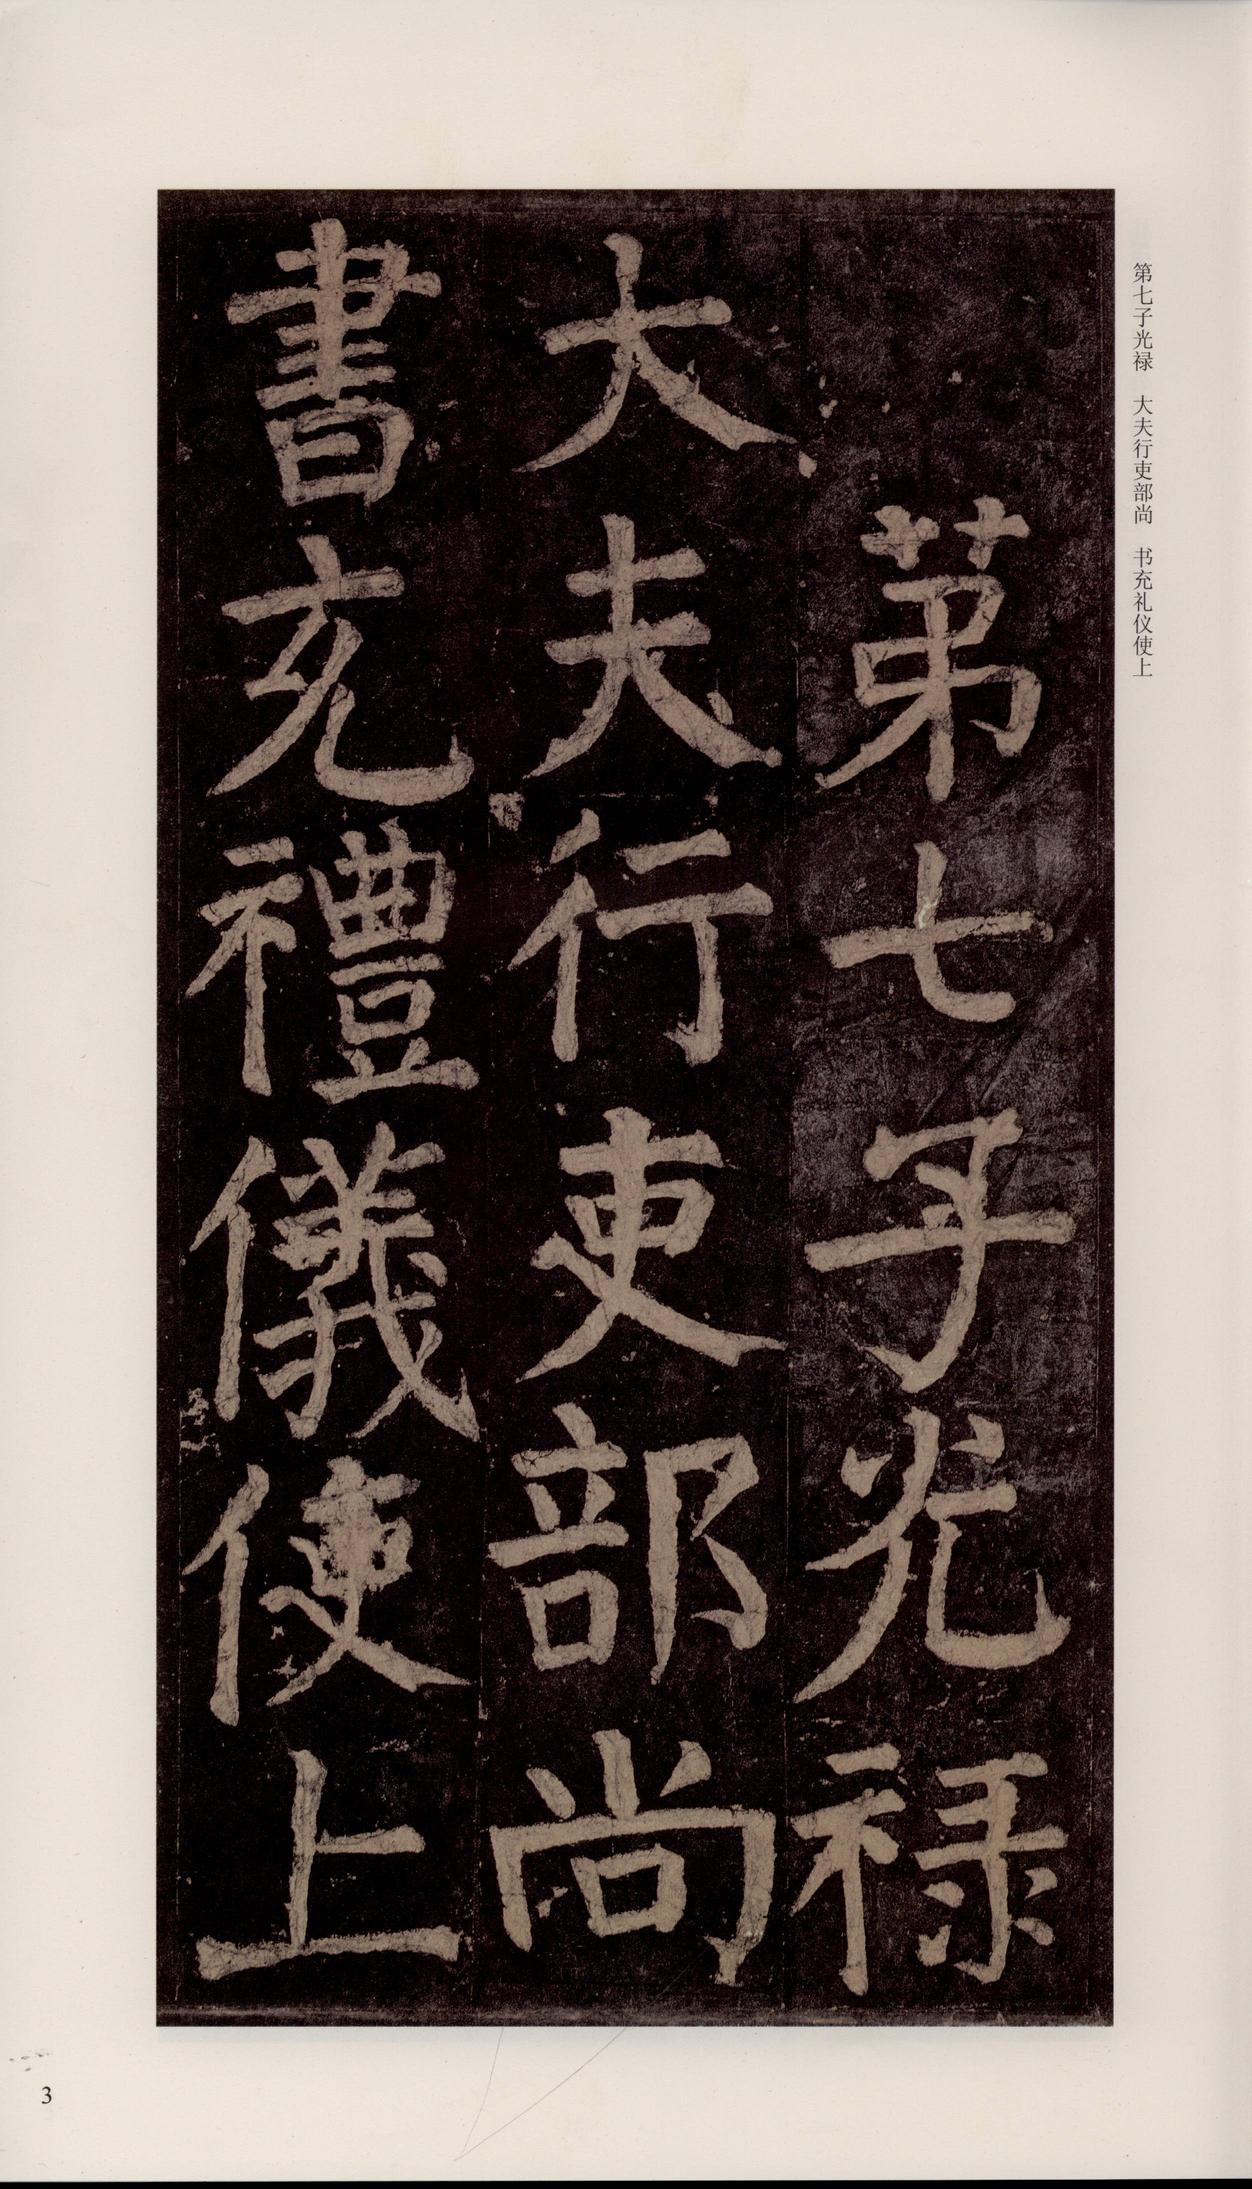 第七子光禄　大夫行吏部尚　书充礼仪使上
第七子光禄
大夫行吏部尚
書充禮儀使上
3